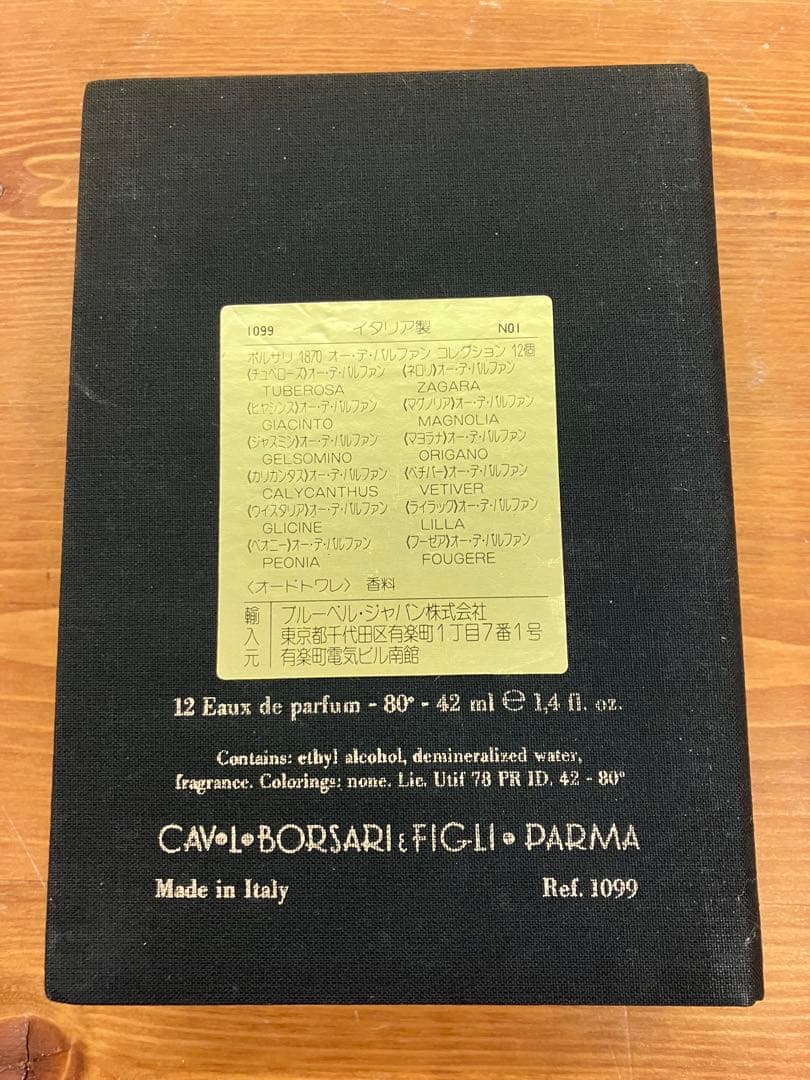 1099 イタリア製 N01
ボルサリ 1870 オー・デ・パルファン コレクション 12個
〈チュベローズ〉オー・デ・パルファン 〈ネロリ〉オー・デ・パルファン
TUBEROSA ZAGARA
〈ヒヤシンス〉オー・デ・パルファン 〈マグノリア〉オー・デ・パルファン
GIACINTO MAGNOLIA
〈ジャスミン〉オー・デ・パルファン 〈マヨラナ〉オー・デ・パルファン
GELSOMINO ORIGANO
〈カリカンタス〉オー・デ・パルファン 〈ベチバー〉オー・デ・パルファン
CALYCANTHUS VETIVER
〈ウイスタリア〉オー・デ・パルファン 〈ライラック〉オー・デ・パルファン
GLICINE LILLA
〈ペオニー〉オー・デ・パルファン 〈フーゼア〉オー・デ・パルファン
PEONIA FOUGERE
〈オードトワレ〉 香料
輸入元 ブルーベル・ジャパン株式会社
東京都千代田区有楽町1丁目7番1号
有楽町電気ビル南館
12 Eaux de parfum - 80° - 42 ml ℮ 1,4 fl. oz.
Contains: ethyl alcohol, demineralized water,
fragrance. Colorings: none. Lic. Utif 78 PR ID. 42 - 80°
CAV•L•BORSARI & FIGLI • PARMA
Made in Italy Ref. 1099